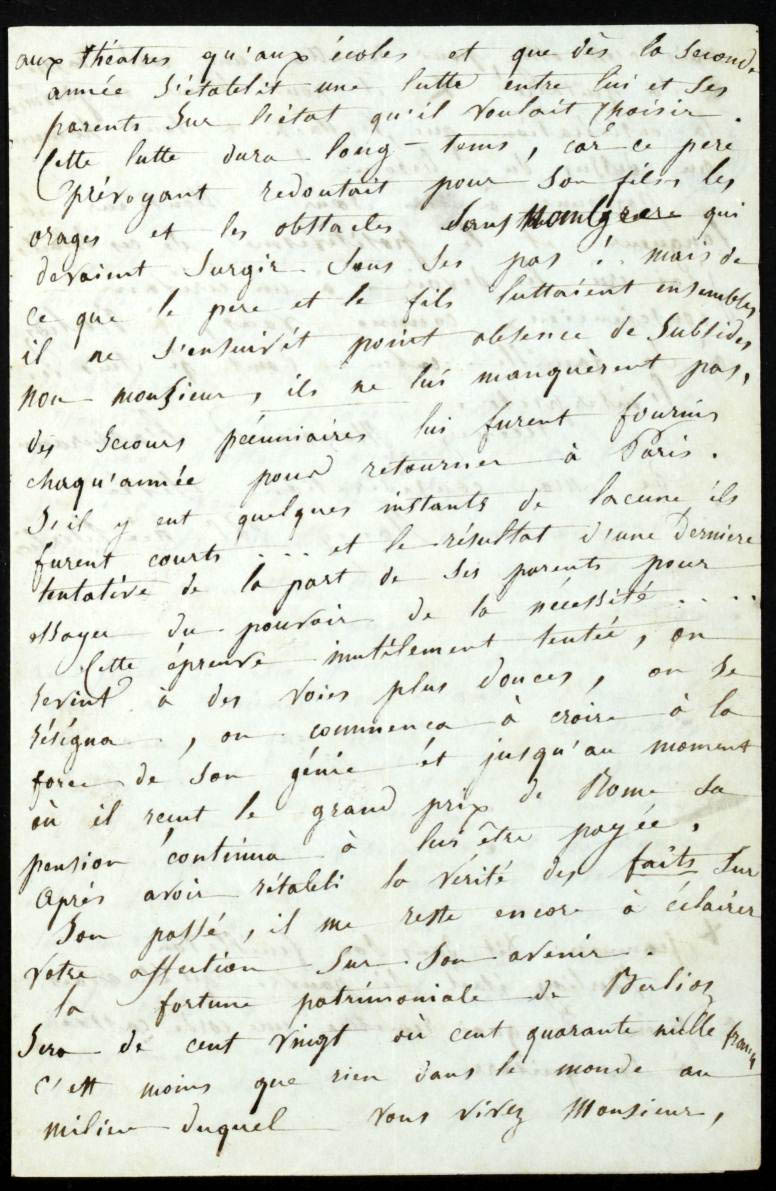 aux théatres qu'aux écoles et que dès la seconde
année s'établit une lutte entre lui et ses
parents sur l'état qu'il voulait choisir.
Cette lutte dura long-tems, car ce pere
prévoyant redoutait pour son fils les
orages et les obstacles sans nombre qui
devaient surgir sous ses pas !.. mais de
ce que le pere et le fils luttaient ensembles
il ne s'ensuivit point absence de subsides
non monsieur, ils ne lui manquèrent pas,
des secours pécuniaires lui furent fournis
chaqu'année pour retourner à Paris.
S'il y eut quelques instants de lacune ils
furent courts .... et le résultat d'une derniere
tentative de la part de ses parents pour
essayer du pouvoir de la nécessité ....
Cette épreuve inutilement tentée, on
revint à des voies plus douces, on se
résigna, on commença à croire à la
force de son génie et jusqu'au moment
où il reçut le grand prix de Rome sa
pension continua à lui être payée.
Après avoir rétabli la vérité des faits sur
son passé, il me reste encore à éclairer
votre affection sur son avenir.
la fortune patrimoniale de Berlioz
sera de cent vingt où cent quarante mille francs
c'est moins que rien dans le monde au
milieu duquel vous vivez Monsieur,